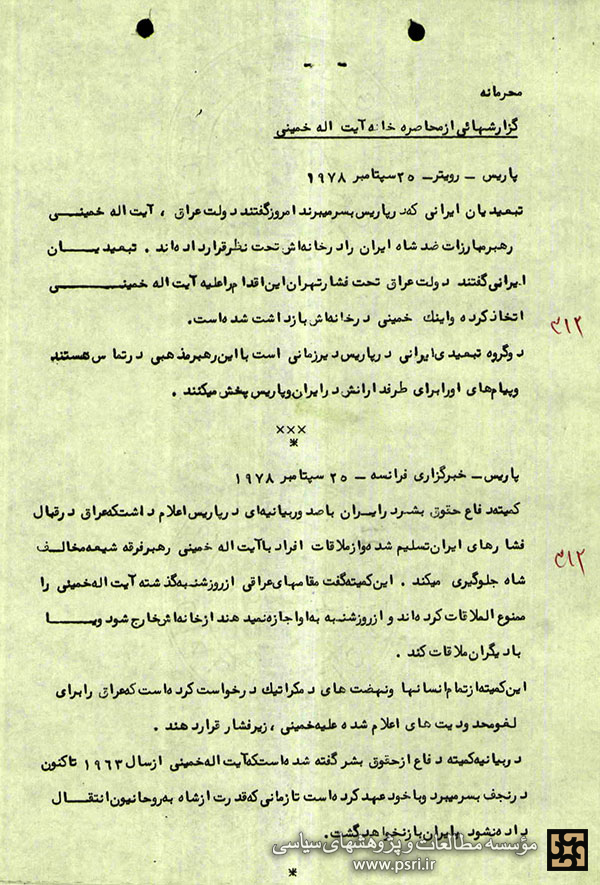 محرمانه
گزارشهائی از محاصره خانه آیت اله خمینی
پاریس - رویتر - ۲۵ سپتامبر ۱۹۷۸
تبعیدیان ایرانی که در پاریس بسر میبرند امروز گفتند دولت عراق ، آیت اله خمینی
رهبر مبارزات ضد شاه ایران را در خانه‌اش تحت نظر قرار داده‌اند . تبعیدیان
ایرانی گفتند دولت عراق تحت فشار تهران این اقدام را علیه آیت اله خمینی
اتخاذ کرده و اینك خمینی در خانه‌اش بازداشت شده‌است.
دو گروه تبعیدی ایرانی در پاریس دیر زمانی است با این رهبر مذهبی در تماس هستند
و پیام‌های او را برای طرفدارانش در ایران و پاریس پخش میکنند .
×××
*
پاریس - خبرگزاری فرانسه - ۲۵ سپتامبر ۱۹۷۸
کمیته دفاع حقوق بشر در ایران با صدور بیانیه‌ای در پاریس اعلام داشت که عراق در قبال
فشارهای ایران تسلیم شده و از ملاقات افراد با آیت اله خمینی رهبر فرقه شیعه مخالف
شاه جلوگیری میکند . این کمیته گفت مقامهای عراقی از روز شنبه گذشته آیت اله خمینی را
ممنوع الملاقات کرده‌اند و از روز شنبه به او اجازه نمیدهند از خانه‌اش خارج شود و یا
با دیگران ملاقات کند .
این کمیته از تمام انسانها و نهضت های دمکراتیك درخواست کرده است که عراق را برای
لغو محدودیت های اعلام شده علیه خمینی ، زیر فشار قرار دهند .
در بیانیه کمیته دفاع از حقوق بشر گفته شده‌است که آیت اله خمینی از سال ۱۹۶۳ تا کنون
در نجف بسر میبرد و با خود عهد کرده است تا زمانی که قدرت از شاه به روحانیون انتقال
داده نشود بایران باز نخواهد گشت.
*
۳۱۲
۳۱۲
مؤسسه مطالعات و پژوهشهای سیاسی
www.psri.ir